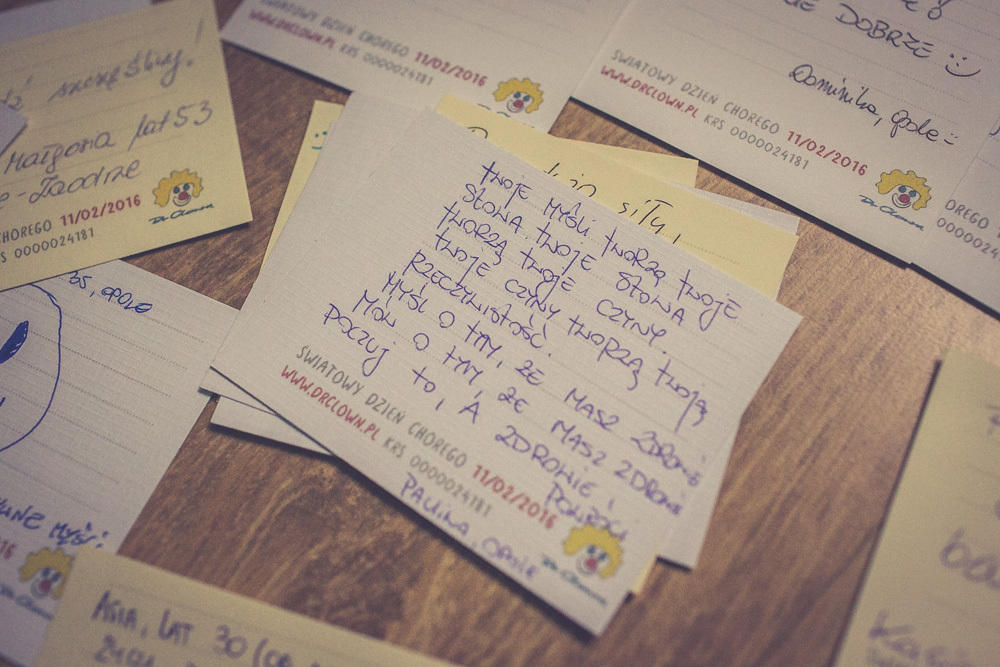 szczęśliwy!
Małgosia lat 53
CHOREGO 11/02/2016
S 0000024181
Dr.Clown
ŚWIATOWY DZIEŃ CHOREGO 11/02/2016
WWW.DRCLOWN.PL KRS 0000024181
DOBRZE :)
Dominika, opole :)
ŚWIATOWY DZIEŃ CHOREGO 11/02/2016
WWW.DRCLOWN.PL KRS 0000024181
Dr.Clown
OREGO
0000024
siły,
TWOJE MYŚLI TWORZĄ TWOJE
SŁOWA, TWOJE SŁOWA
TWORZĄ TWOJE CZYNY,
TWOJE CZYNY TWORZĄ TWOJĄ
RZECZYWISTOŚĆ.
MYŚL O TYM, ŻE MASZ ZDROWIE
MÓW O TYM, ŻE MASZ ZDROWIE
POCZUJ TO, A ZDROWIE
ŚWIATOWY DZIEŃ CHOREGO 11/02/2016
WWW.DRCLOWN.PL KRS 0000024181
PAULINA, OPOLE
Dr.Clown
OPOLE
MYŚLI
16
ASIA, LAT 30